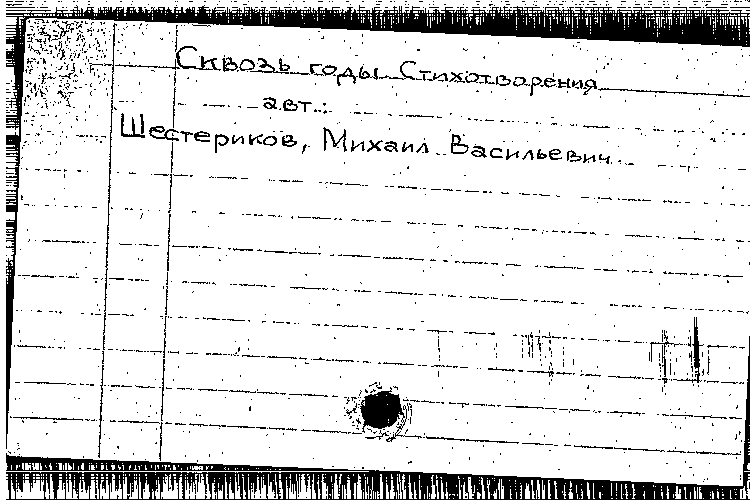 Сквозь годы Стихотворения
авт.:
Шестериков, Михаил Васильевич